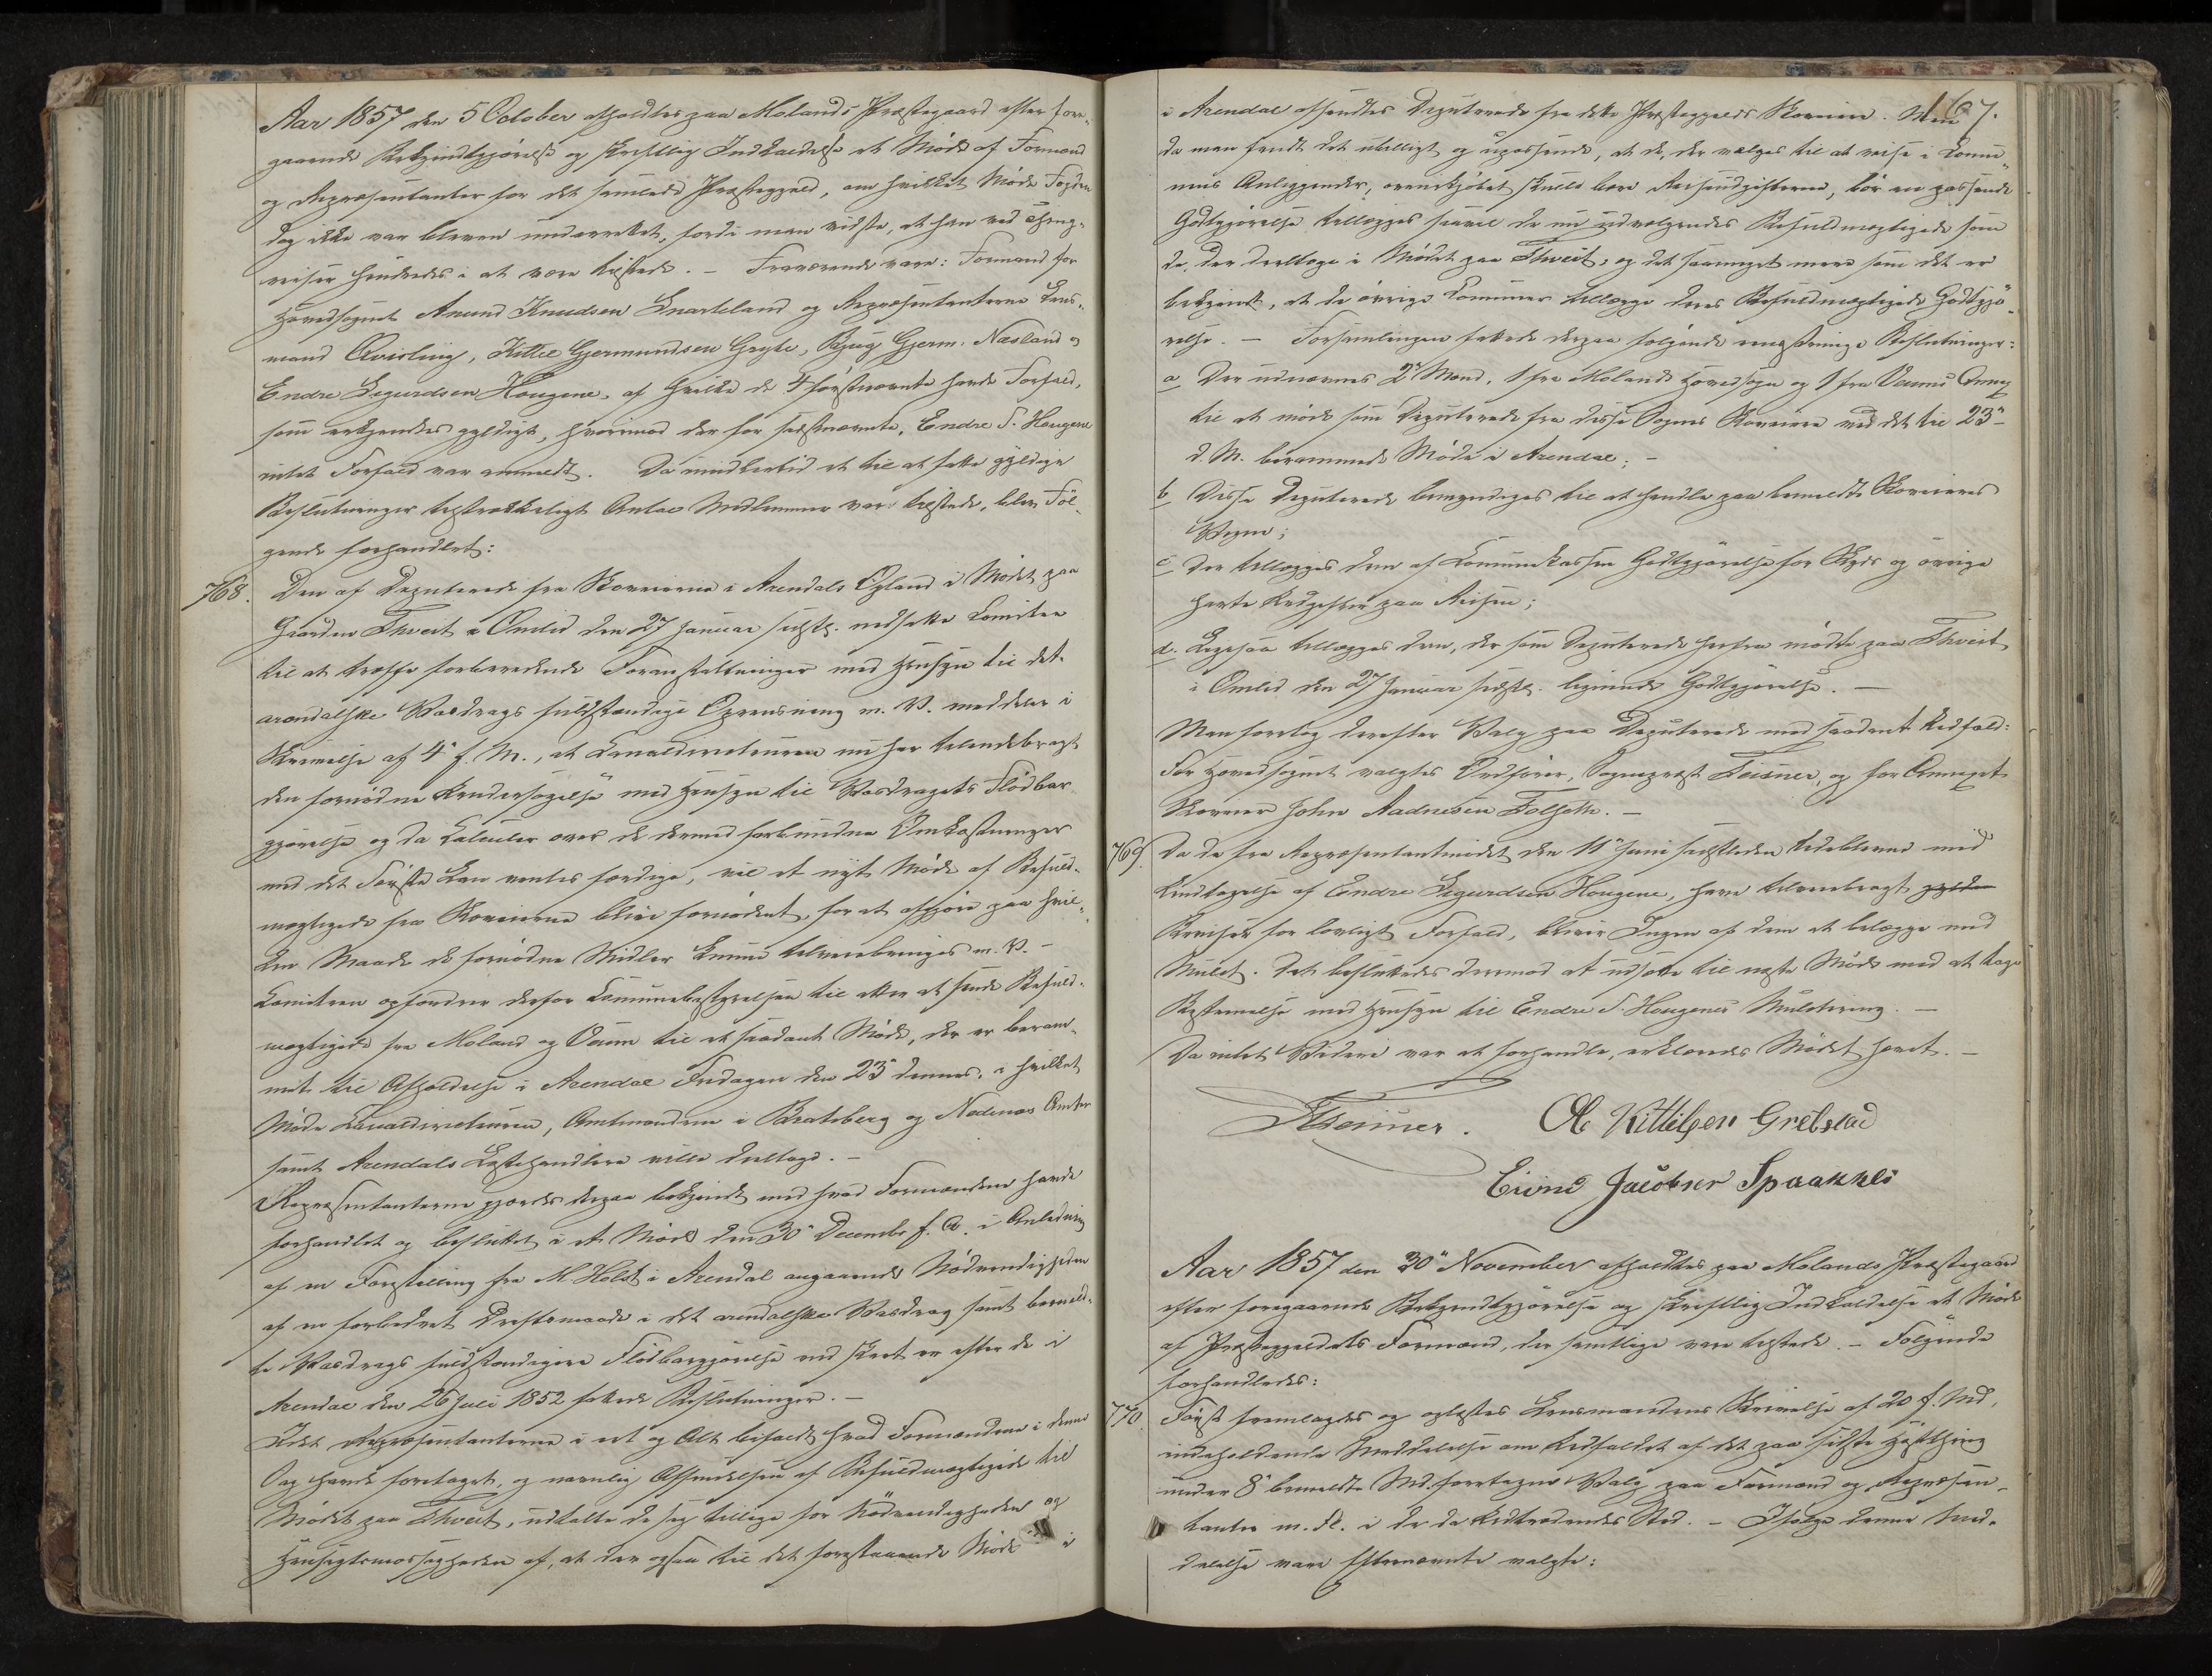 Aar 1857 den 5 October afholdtes paa Molands Præstegaard efter fore-
gaaende Bekjendtgjørelse og skriftlig Indkaldelse et Møde af Formænd
og Repræsentanter for det samlede Præstegjeld, om hvilket Møde Fogden
dog ikke var bleven underrettet, fordi man vidste, at han ved Thing-
reiser hindredes i at være tilstede. – Fraværende vare: Formand for
Hovedsognet Anund Knudsen Snarteland og Repræsentanterne Lens-
mand Qvisling, Kittel Gjermundsen Gryte, Bjug Gjerm. Næsland og
Endre Sigurdsen Haugene, af hvilke de 4 førstnævnte havde Forfald,
som erkjendtes gyldigt, hvorimod der for sidstnævnte, Endre S. Haugene
intet Forfald var anmeldt. Da imidlertid et til at fatte gyldige
Beslutninger tilstrækkeligt Antal Medlemmer var tilstede, blev Føl-
gende forhandlet:
768. Den af Deputerede fra Skoveierne i Arendals Opland i Mødet paa
Gaarden Thveit i Omlid den 27 Januar sidstl. nedsatte Comitee
til at træffe forberedende Foranstaltninger med Hensyn til det
arendalske Vasdrags fuldstændige Oprensning m. V. meddeler i
Skrivelse af 4de f. M., at Canaldirecteuren nu har tilendebragt
den fornødne Undersøgelse med Hensyn til Vasdragets Flødbar-
gjørelse og da Calculer over de dermed forbundne Omkostninger
med det Første kan ventes færdige, vil et nyt Møde af Befuld-
mægtigede fra Skoveierne blive fornødent, for at afgjøre paa hvil-
ken Maade de fornødne Midler kunne tilveiebringes m. V. –
Comiteen opfordrer derfor Communebestyrelsen til atter at sende Befuld-
mægtigede fra Moland og Veum til et saadant Møde, der er beram-
met til Afholdelse i Arendal Fredagen den 23de dennes, i hvilket
Møde Canaldirecteuren, Amtmændene i Bratsberg og Nedenæs Amter
samt Arendals Lasthandlere ville deeltage. –
Repræsentanterne gjordes derpaa bekjendt med hvad Formændene havde
forhandlet og besluttet i et Møde den 30 Decembr f. A. i Anledning
af en Forestilling fra M. Holst i Arendal angaaende Nødvendigheden
af en forbedret Driftsmaade i det arendalske Vasdrag samt bemeld-
te Vasdrags fuldstændigere Flødbargjørelse end skeet er efter de i
Arendal den 26 Juli 1852 fattede Beslutninger. –
Idet Repræsentanterne i eet og Alt bifaldt hvad Formændene i denne
Sag havde foretaget, og navnlig Afsendelsen af Befuldmægtigede til
Mødet paa Thveit, udtalte de sig tillige for Nødvendigheden og
Hensigtsmæssigheden af, at der ogsaa til det forestaaende Møde i
167.
i Arendal afsendtes Deputerede fra dette Præstegjelds Skoveiere. Men
da man fandt det ubilligt og upassende, at de, der vælges til at reise i Commu-
nens Anliggender, ovenikjøbet skulle bære Reiseudgifterne, bør en passende
Godtgjørelse tillægges saavel de nu udvælgendes Befuldmægtigede som
de, der deeltoge i Mødet paa Thveit, og det saameget mere som det er
bekjendt, at de øvrige Communer tillægge deres Befuldmægtigede Godtgjø-
relse. – Forsamlingen fattede derpaa følgende eenstemmige Beslutninger:
a Der udnævnes 2de Mænd, 1 fra Molands Hovedsogn og 1 fra Veums Annex
til at møde som Deputerede fra disse Sognes Skoveiere ved det til 23de
d. M. berammede Møde i Arendal; –
b Disse Deputerede bemyndiges til at handle paa bemeldte Skoveieres
Vegne;
c Der tillægges dem af Communekassen Godtgjørelse for Skyds og øvrige
havte Udgifter paa Reisen;
d. Ligesaa tillægges dem, der som Deputerede herfra mødte paa Thveit
i Omlid den 27 Januar sidstl. lignende Godtgjørelse. –
Man foretog derefter Valg paa Deputerede med saadant Udfald:
For Hovedsognet valgtes Ordfører, Sognepræst Feiner, og for Annexet
Skoveier John Aadnesen Folseth. –
769. Da de fra Repræsentantmødet den 11te Juni sidstleden Udeblevne med
Undtagelse af Endre Sigurdsen Haugene, have tilveiebragt
Beviser for lovligt Forfald, bliver Ingen af dem at belægge med
Mulct. Det besluttedes derimod at udsætte til næste Møde med at tage
Bestemmelse med Hensyn til Endre S. Haugenes Mulctering. –
Da intet Videre var at forhandle, erklæredes Mødet hævet. –
Feiner. Ole Kittilsen Grebstad
Eivind Jacobsen Spaakkli
Aar 1857 den 30te November afholdtes paa Molands Præstegaard
efter foregaaende Bekjendtgjørelse og skriftlig Indkaldelse et Møde
af Præstegjeldets Formænd, der samtlige vare tilstede. – Følgende
forhandledes:
770. Først fremlagdes og oplæstes Lensmandens Skrivelse af 20 f. Md,
indeholdende Meddelelse om Udfaldet af det paa sidste Høstthing
under 8de bemeldte Md. foretagne Valg paa Formænd og Repræsen-
tanter m. Fl. i de da Udtrædendes Sted. – Ifølge denne Med-
delelse vare Efternævnte valgte: